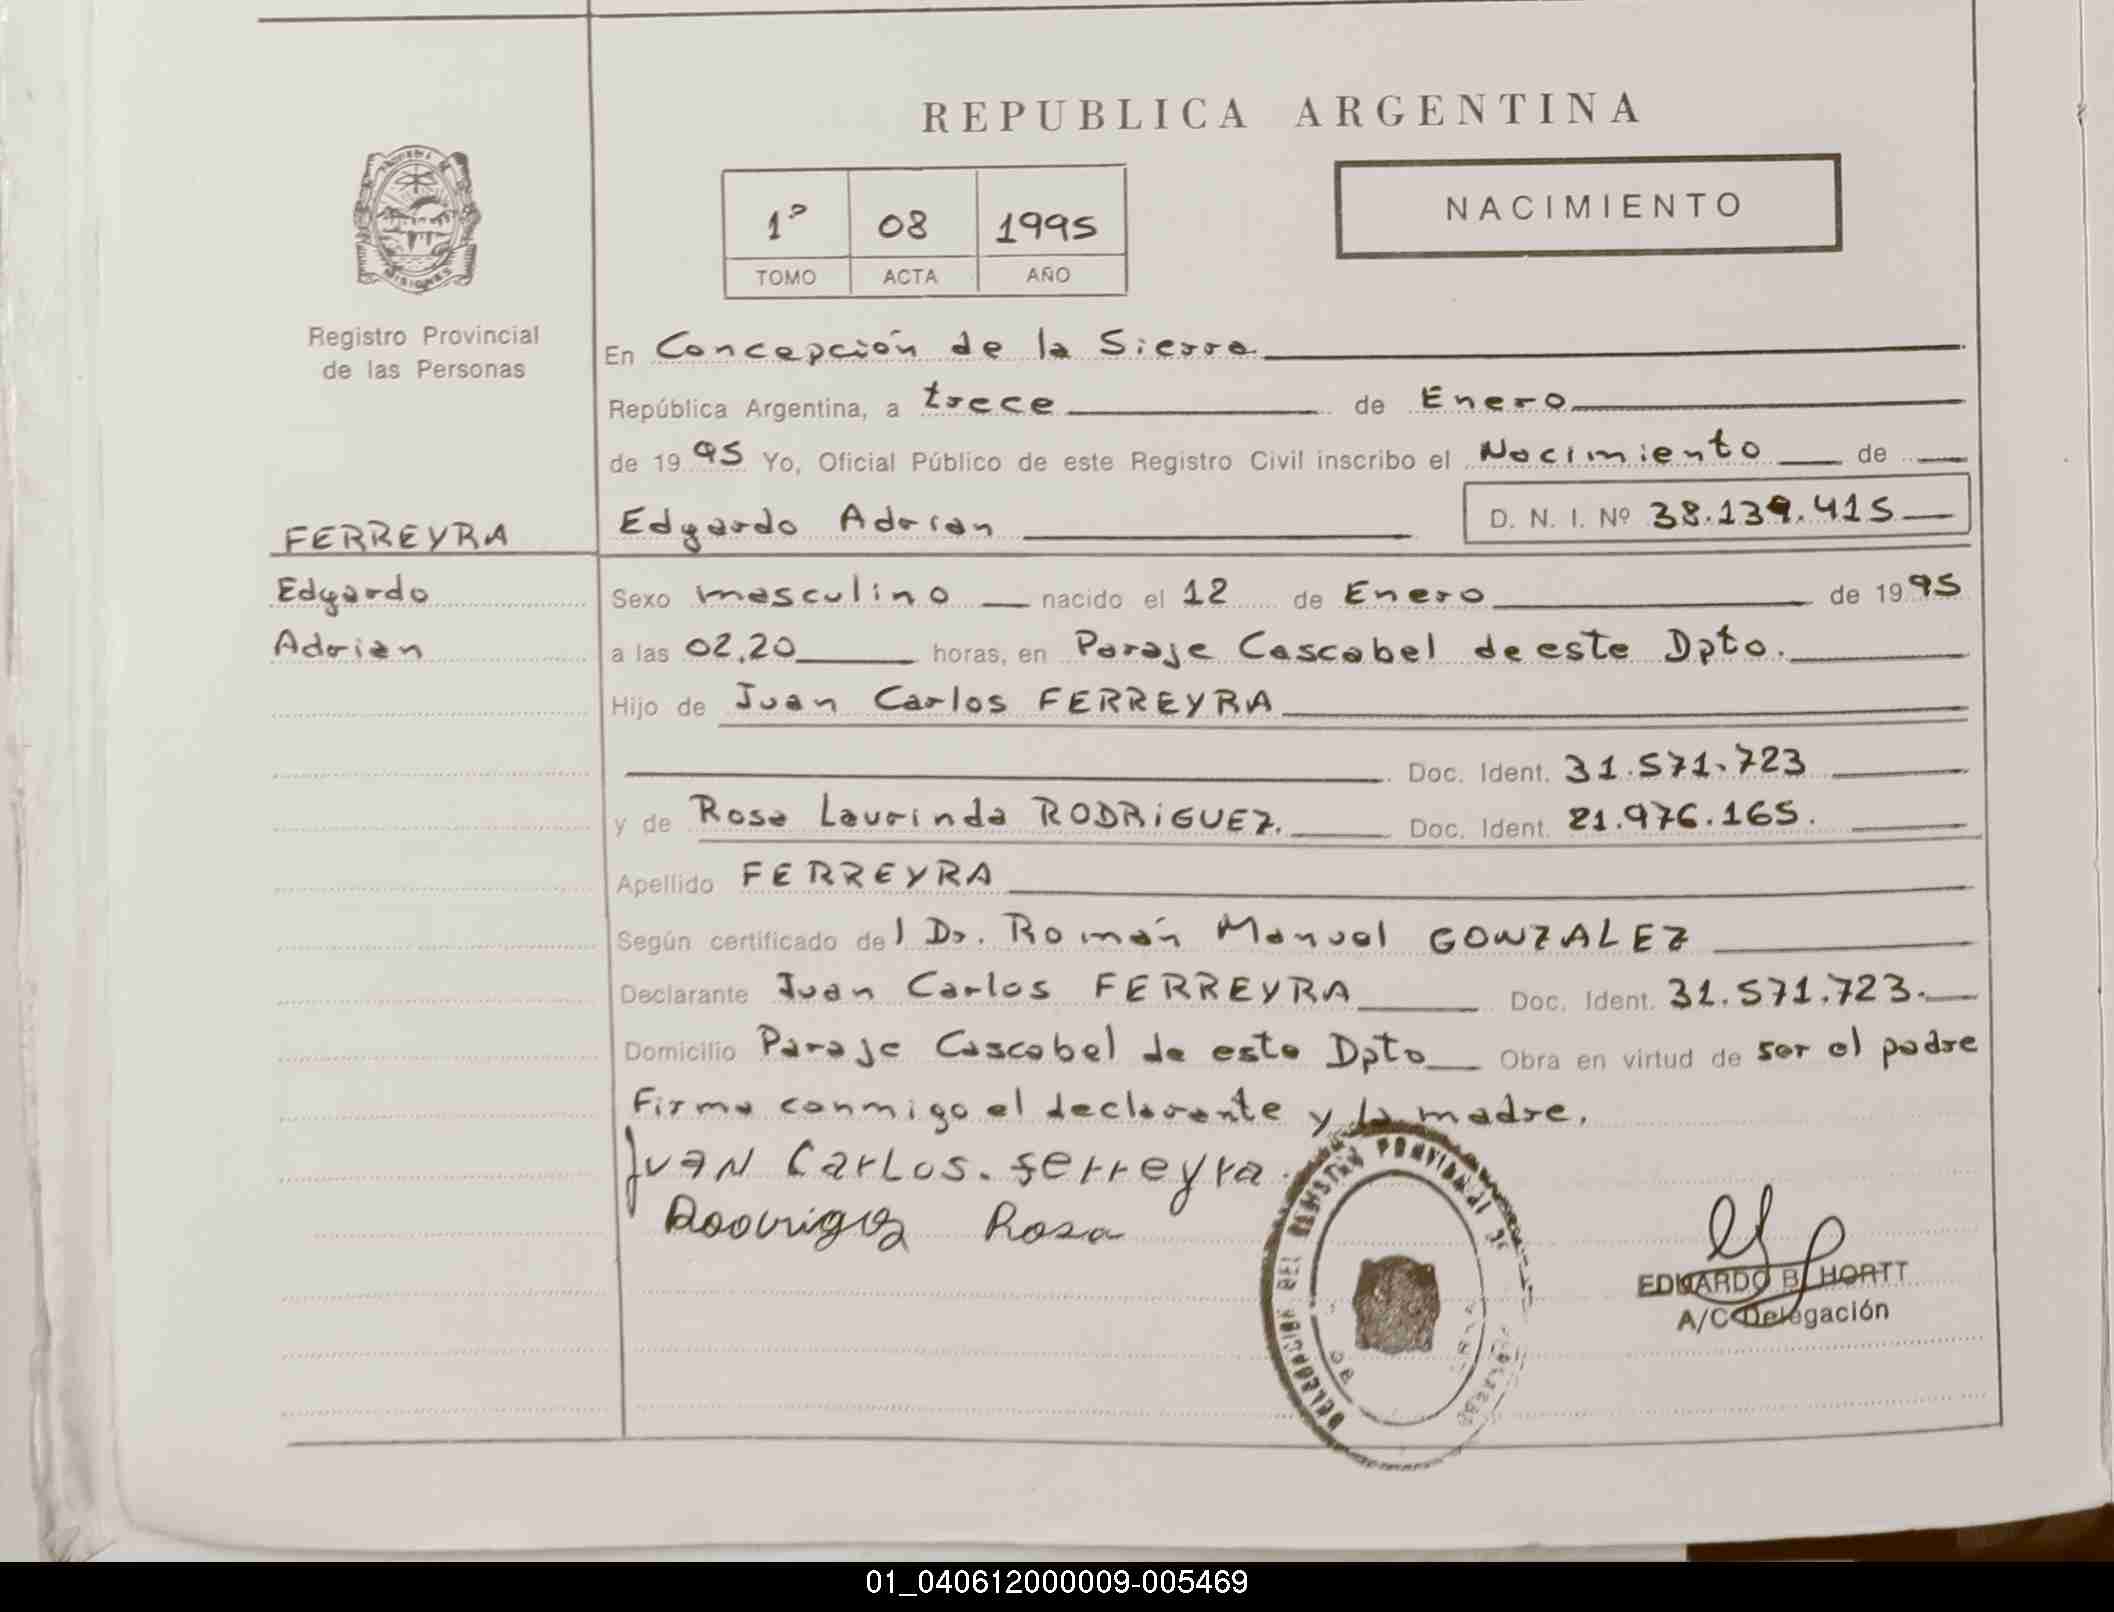 REPUBLICA ARGENTINA
1º 08 1995
TOMO ACTA AÑO
NACIMIENTO
MISIONES
Registro Provincial
de las Personas
En Concepción de la Sierra
República Argentina, a trece de Enero
de 1995 Yo, Oficial Público de este Registro Civil inscribo el Nacimiento de
FERREYRA
Edgardo Adrian D. N. I. Nº 38.139.415
Edgardo
Adrian
Sexo masculino nacido el 12 de Enero de 1995
a las 02,20 horas, en Paraje Cascabel de este Dpto.
Hijo de Juan Carlos FERREYRA
Doc. Ident. 31.571.723
y de Rosa Laurinda RODRiGUEZ. Doc. Ident. 21.976.165.
Apellido FERREYRA
Según certificado del Dr. Román Manuel GONZALEZ
Declarante Juan Carlos FERREYRA Doc. Ident. 31.571.723.
Domicilio Paraje Cascabel de este Dpto Obra en virtud de ser el padre
Firma conmigo el declarante y la madre.
Juan Carlos. Ferreyra.
Rosa
DELEGACION DEL REGISTRO PROVINCIAL DE
EDUARDO B. HORTT
A/C Delegación
01_040612000009-005469